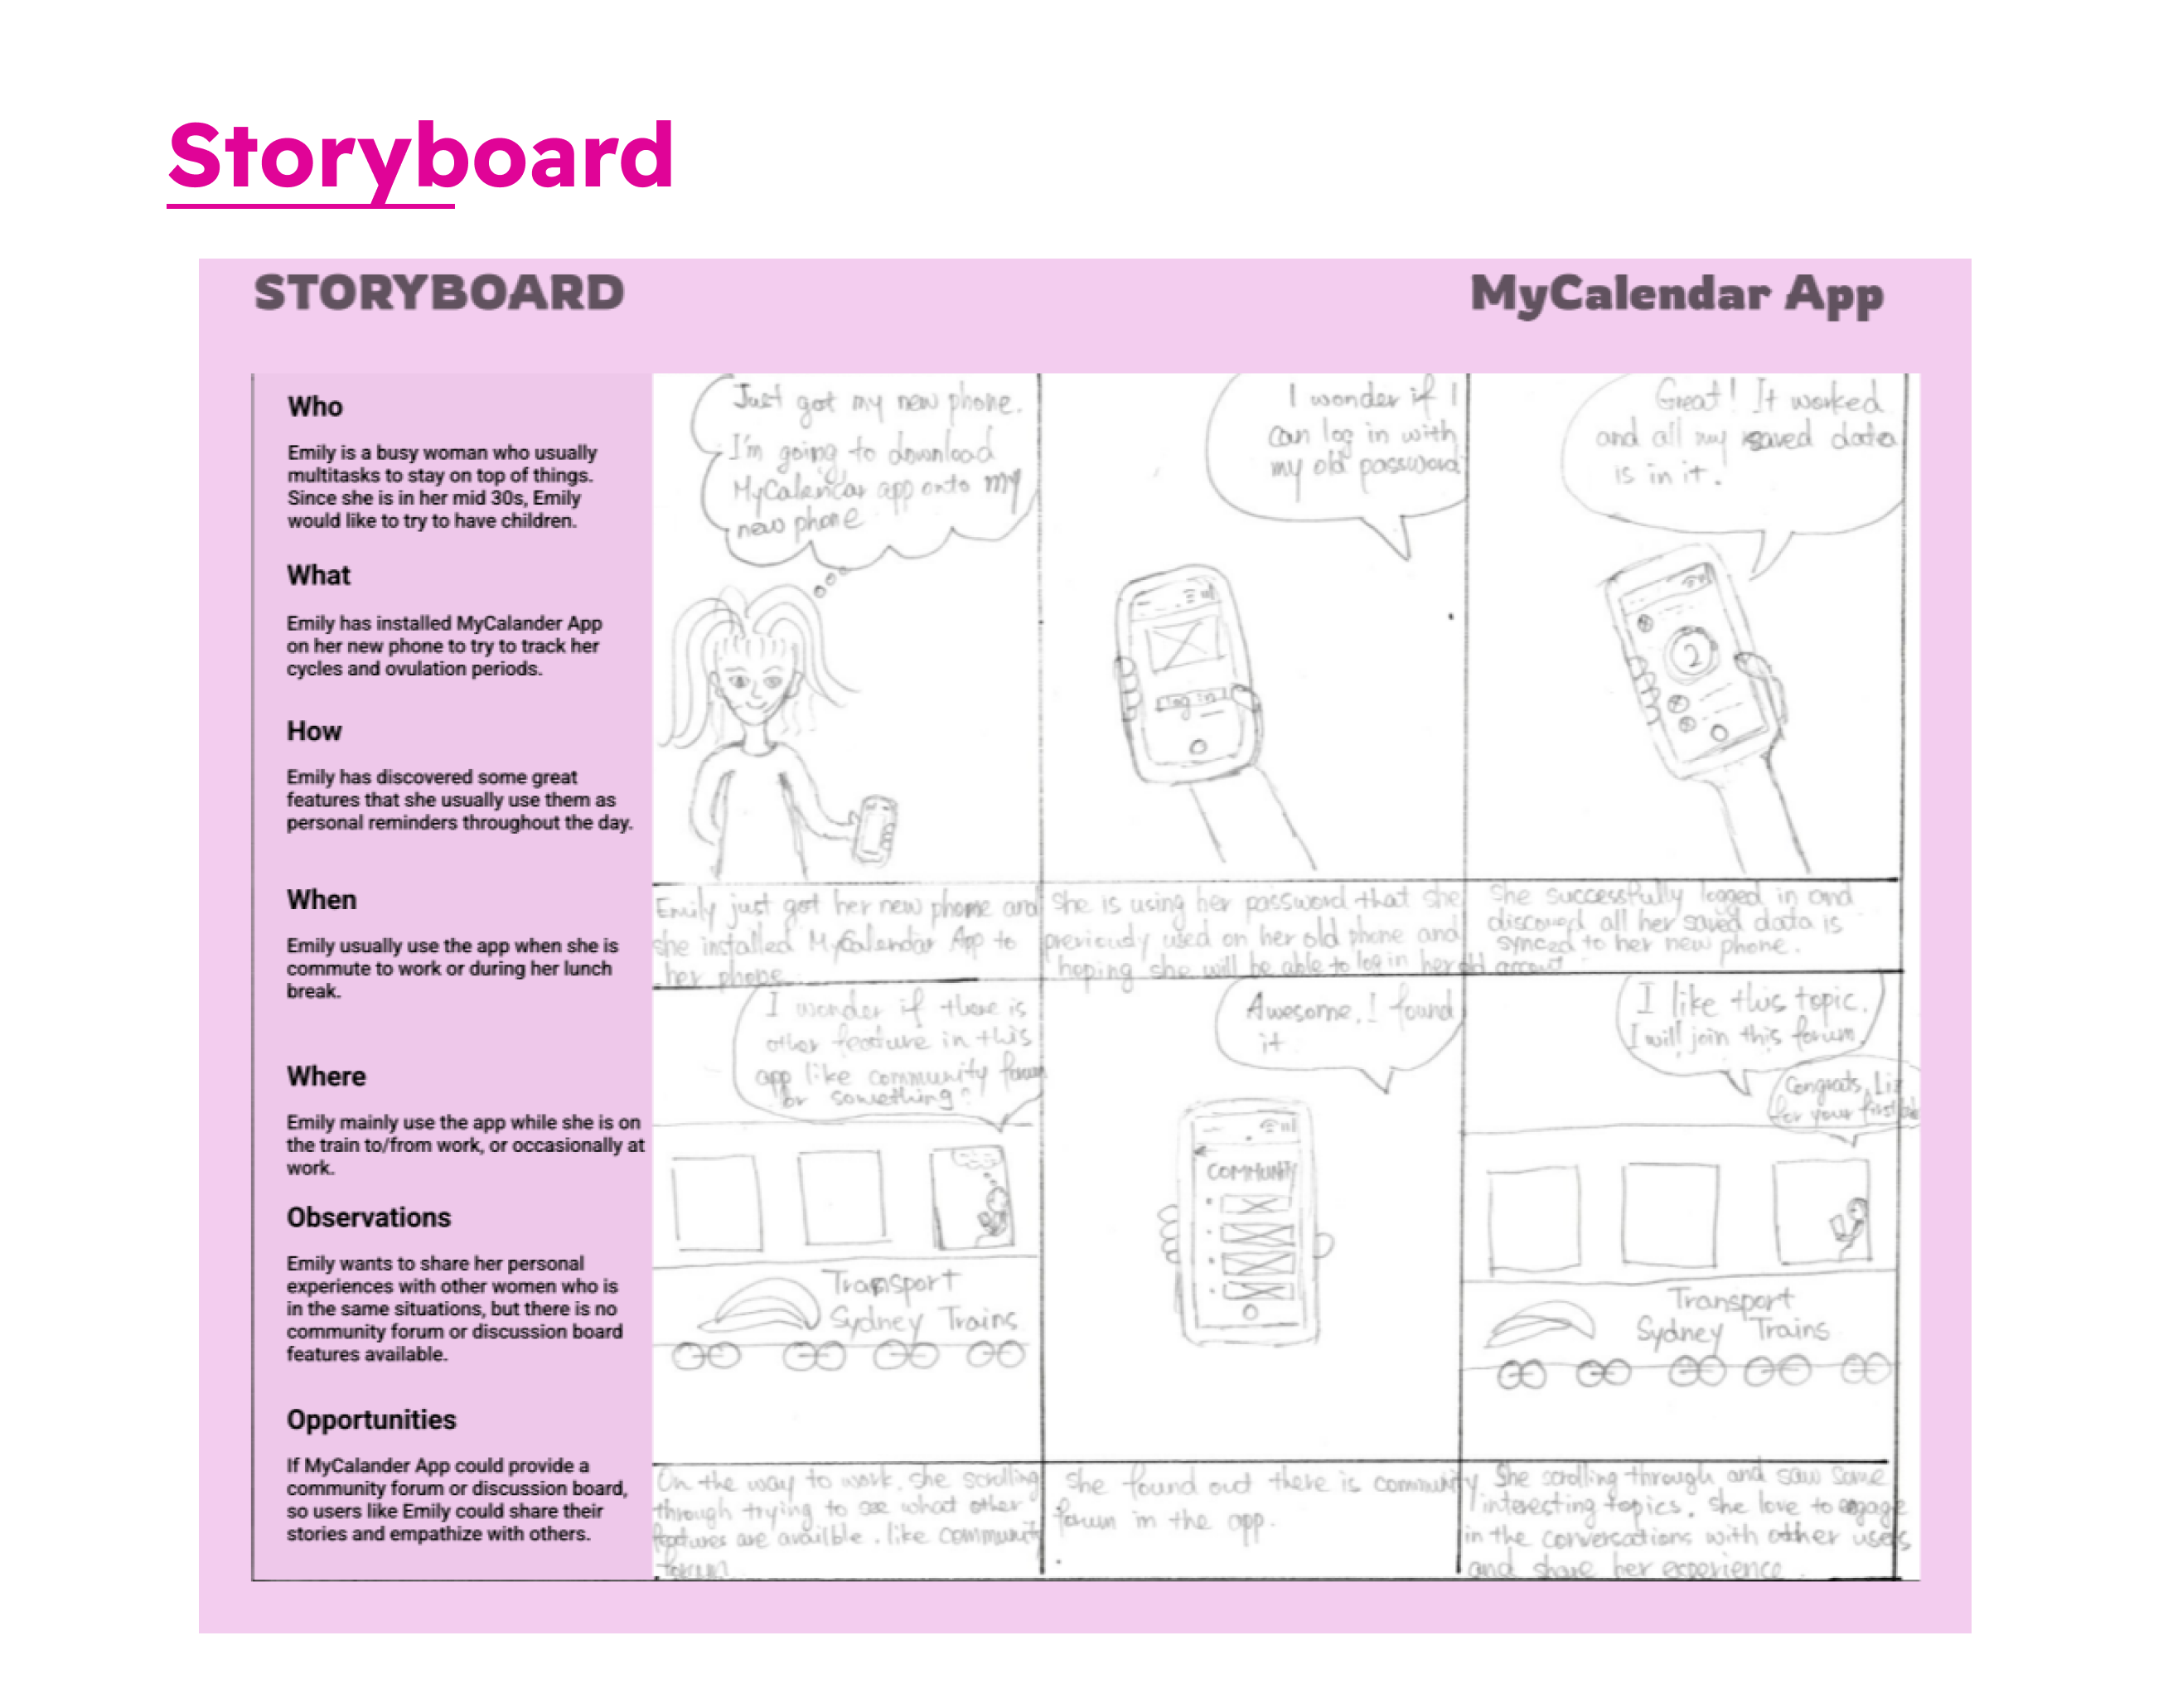 Storyboard
STORYBOARD
MyCalendar App
Who
Emily is a busy woman who usually
multitasks to stay on top of things.
Since she is in her mid 30s, Emily
would like to try to have children.
What
Emily has installed MyCalander App
on her new phone to try to track her
cycles and ovulation periods.
How
Emily has discovered some great
features that she usually use them as
personal reminders throughout the day.
When
Emily usually use the app when she is
commute to work or during her lunch
break.
Where
Emily mainly use the app while she is on
the train to/from work, or occasionally at
work.
Observations
Emily wants to share her personal
experiences with other women who is
in the same situations, but there is no
community forum or discussion board
features available.
Opportunities
If MyCalander App could provide a
community forum or discussion board,
so users like Emily could share their
stories and empathize with others.
Just got my new phone.
I'm going to download
MyCalendar app onto my
new phone
Emily just got her new phone and
she installed MyCalendar App to
her phone.
I wonder if I
can log in with
my old password
log in
She is using her password that she
previously used on her old phone and
hoping she will be able to log in her old account
Great! It worked
and all my saved data
is in it.
2
She successfully logged in and
discoverd all her saved data is
synced to her new phone.
I wonder if there is
other feature in this
app like community forum
or something?
Transport
Sydney Trains
On the way to work, she scrolling
through trying to see what other
features are availble. like community
forum
Awesome, I found
it
COMMUNITY
She found out there is community
forum in the app.
I like this topic.
I will join this forum.
Congrats, Liz
for your first
Transport
Sydney Trains
She scrolling through and saw some
interesting topics. She love to engage
in the conversations with other users
and share her experience.